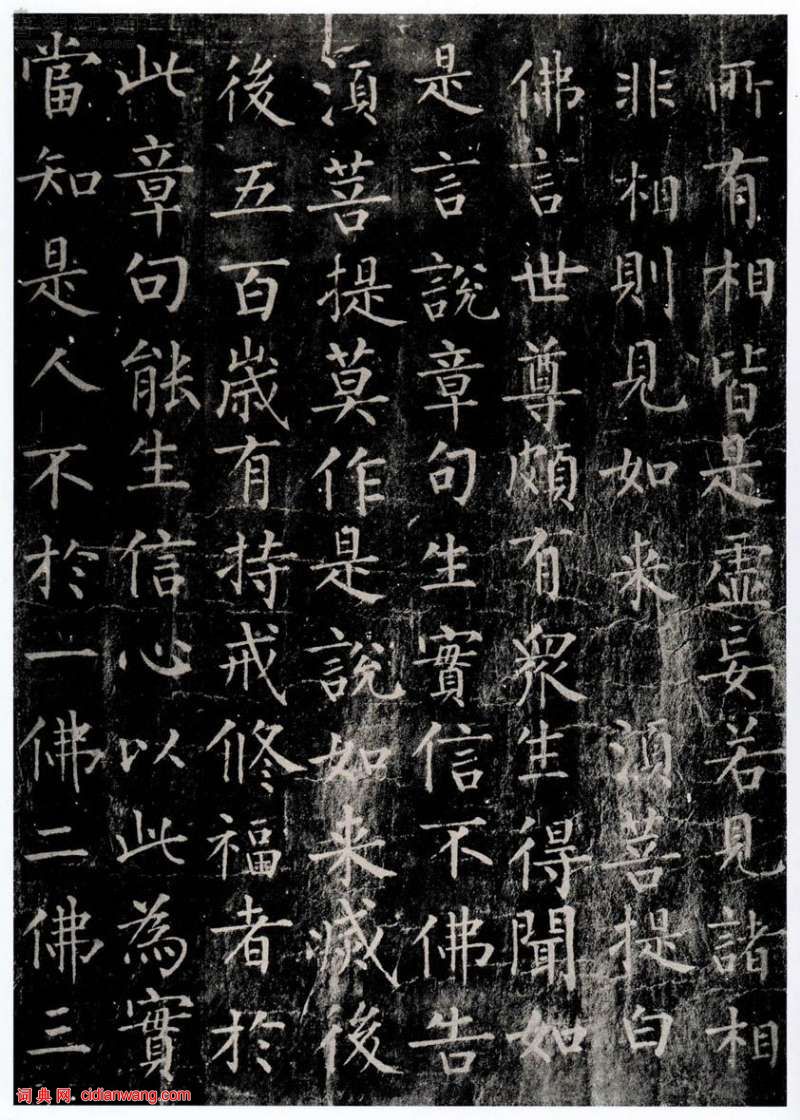 所有相皆是虛妄若見諸相
非相則見如来 須菩提白
佛言世尊頗有眾生得聞如
是言說章句生實信不佛告
須菩提莫作是說如来滅後
後五百歲有持戒修福者於
此章句能生信心以此為實
當知是人不於一佛二佛三
词典网 cidianwang.com